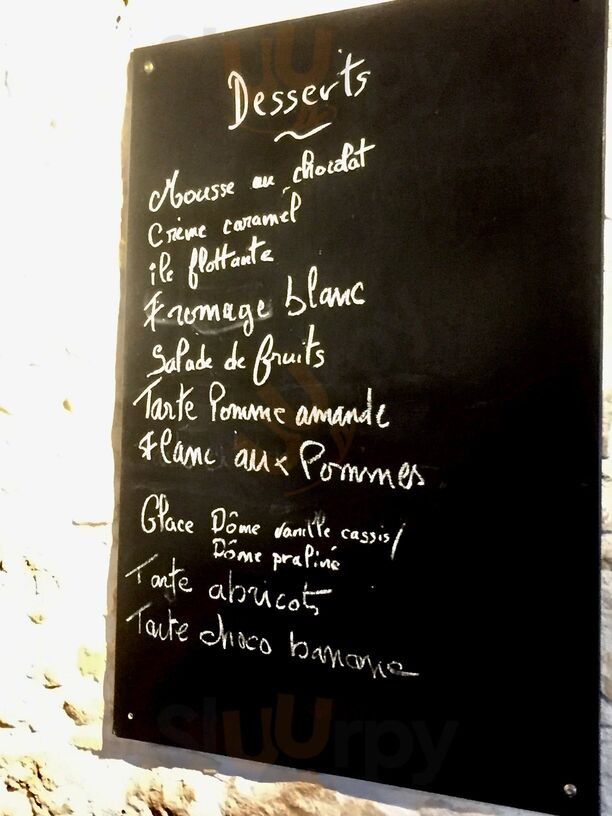 Desserts
Mousse au chocolat
Crème caramel
île flottante
Fromage blanc
Salade de fruits
Tarte Pomme amande
Flanc aux Pommes
Glace Dôme vanille cassis/
Dôme praliné
Tarte abricots
Tarte choco banane
Sluurpy